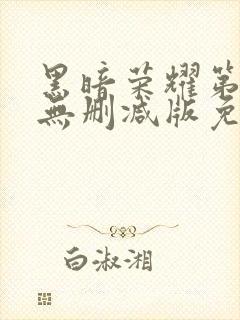 黑暗荣耀第
無删减版免
白淑湘